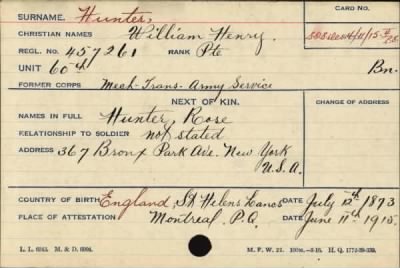 SURNAME. Hunter,
CARD NO.
CHRISTIAN NAMES William Henry.
REGL. NO. 457261 RANK Pte
UNIT 60th Bn.
FORMER CORPS Mech-Trans-Army Service
NEXT OF KIN.
CHANGE OF ADDRESS
NAMES IN FULL Hunter, Rose
RELATIONSHIP TO SOLDIER not stated
ADDRESS 367 Bronx Park Ave. New York
U.S.A.
COUNTRY OF BIRTH England, St Helens Lancs DATE July 12th 1873
PLACE OF ATTESTATION Montreal. P.Q. DATE June 11th 1915.
L. L. 6243. M. & D. 6994.
M. F. W. 21. H. Q. 1772-39-339.